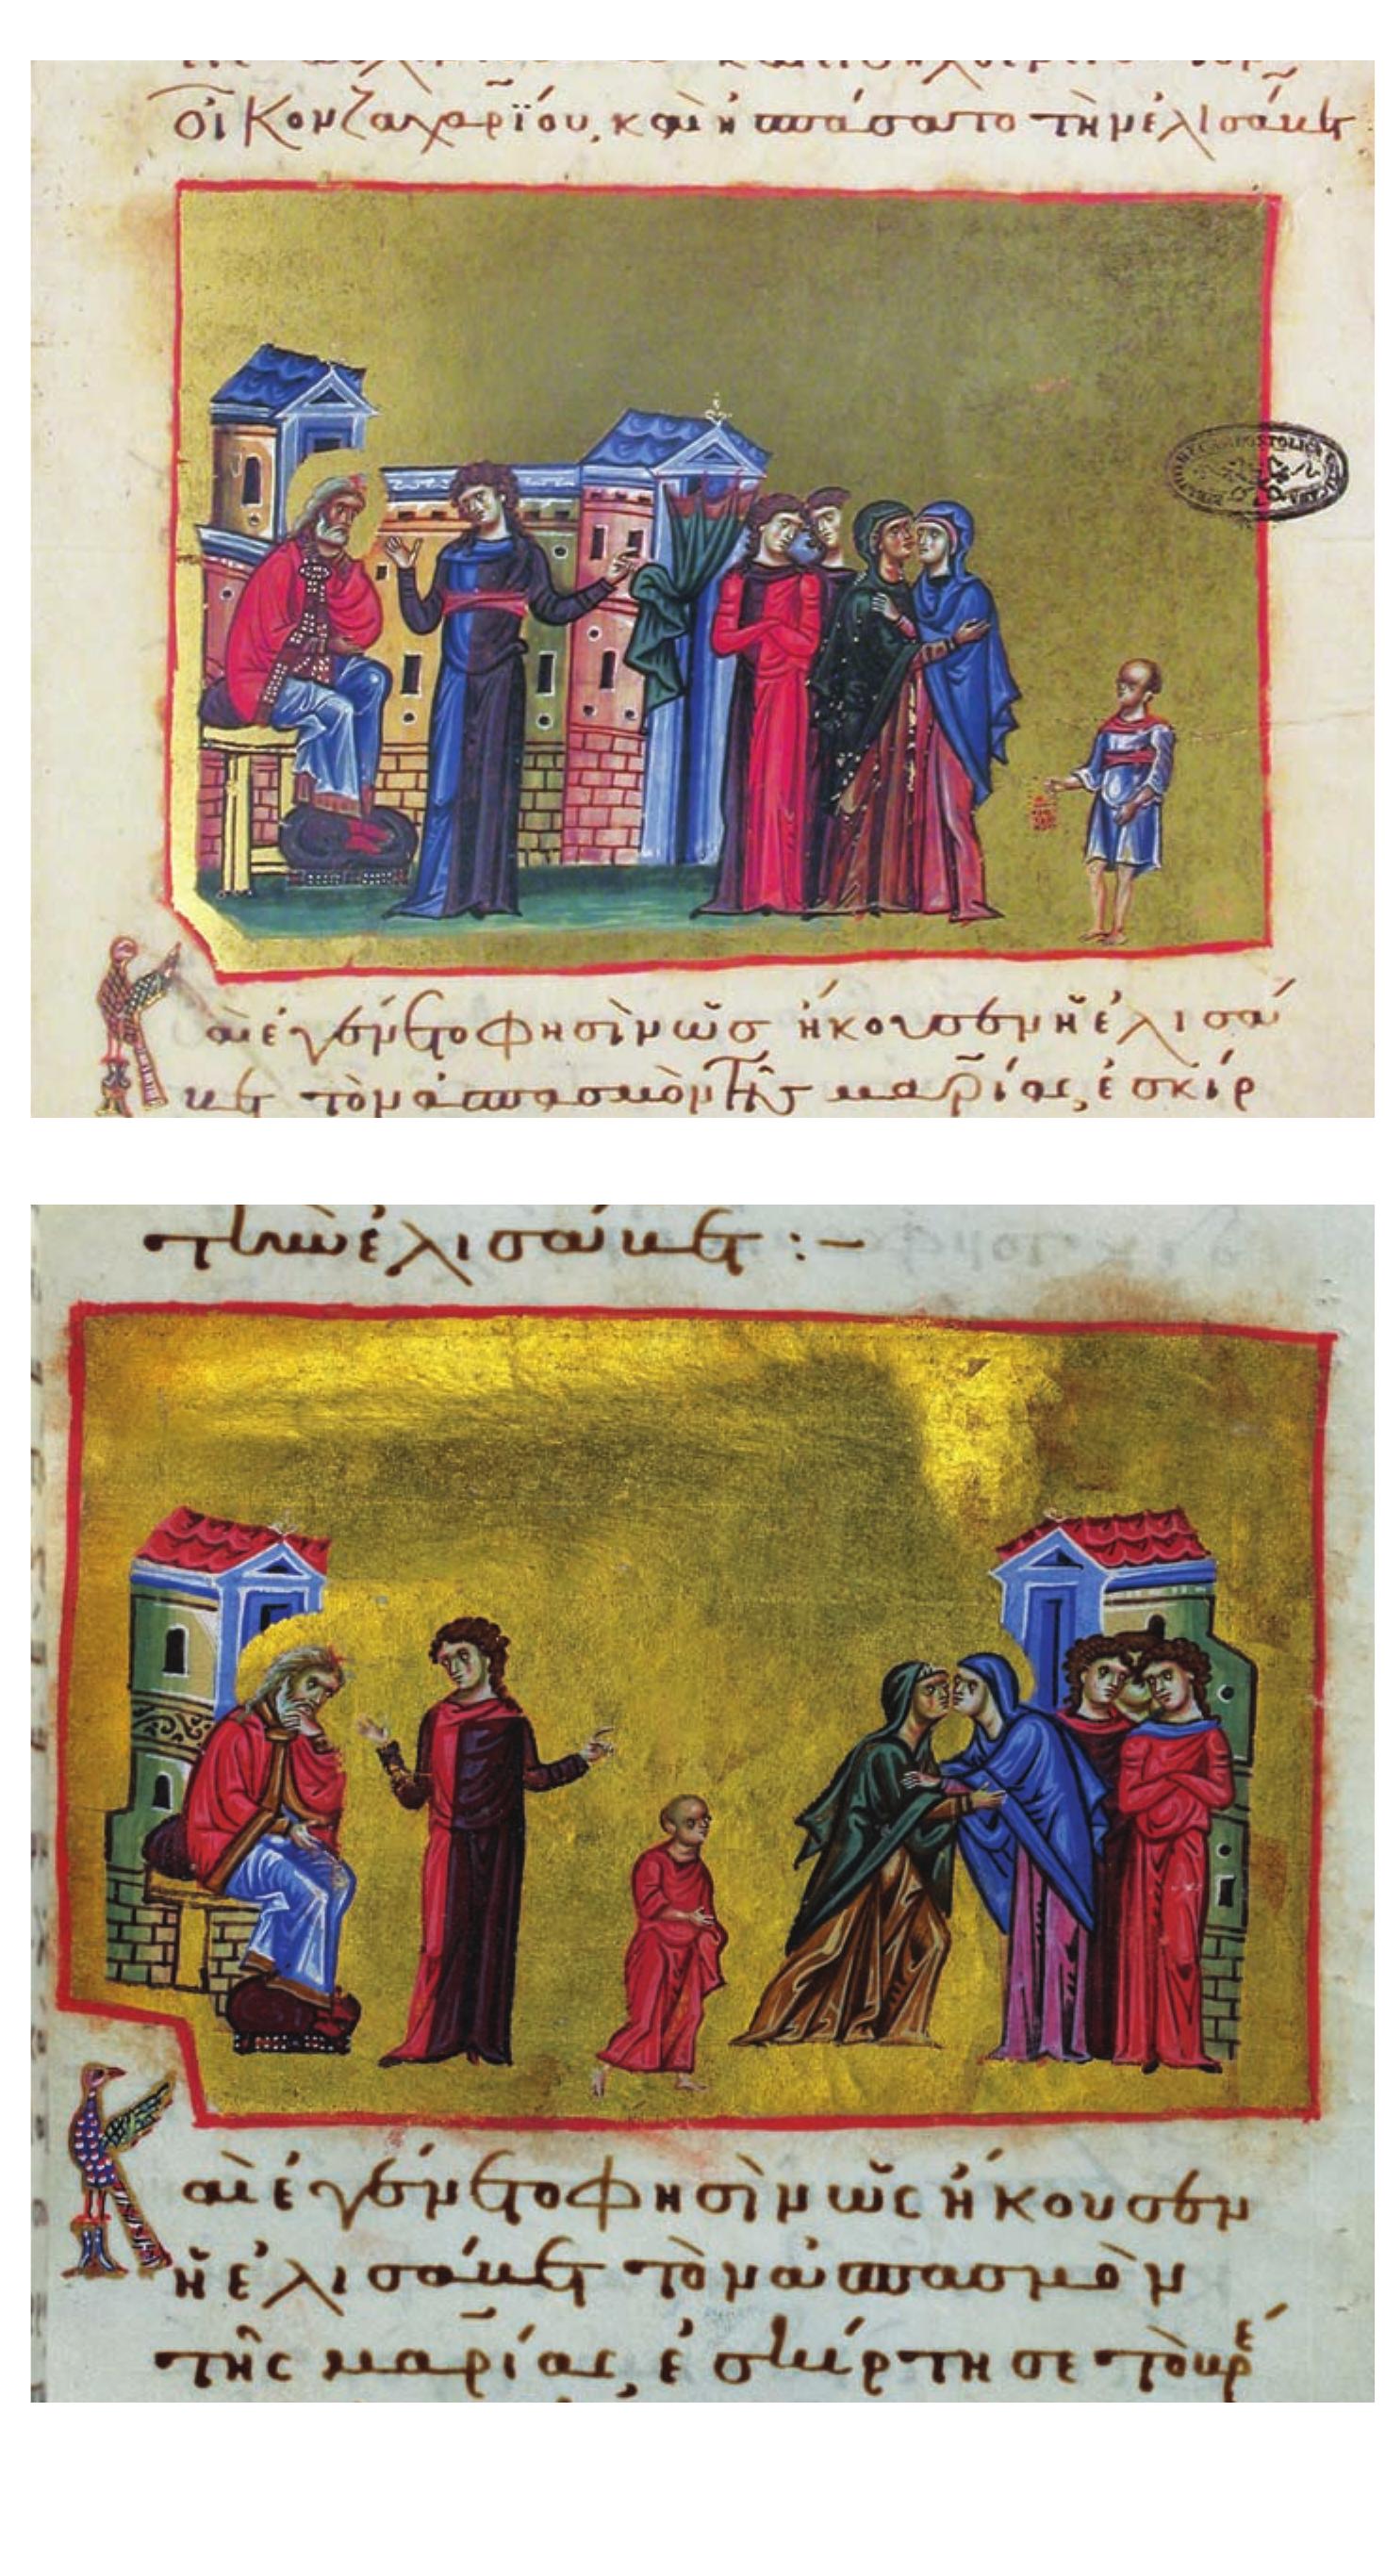 οἶκον ζαχαρίου, καὶ ἠσπάσατο τὴν ἐλισάβετ
Καὶ ἐγένετο φησὶν ὡς ἤκουσεν ἡ ἐλισά
βετ τὸν ἀσπασμὸν τῆς μαρίας, ἐσκίρ
τὴν ἐλισάβετ :-
Καὶ ἐγένετο φησὶν ὡς ἤκουσεν
ἡ ἐλισάβετ τὸν ἀσπασμὸν
τῆς μαρίας, ἐσκίρτησε τὸ βρέ